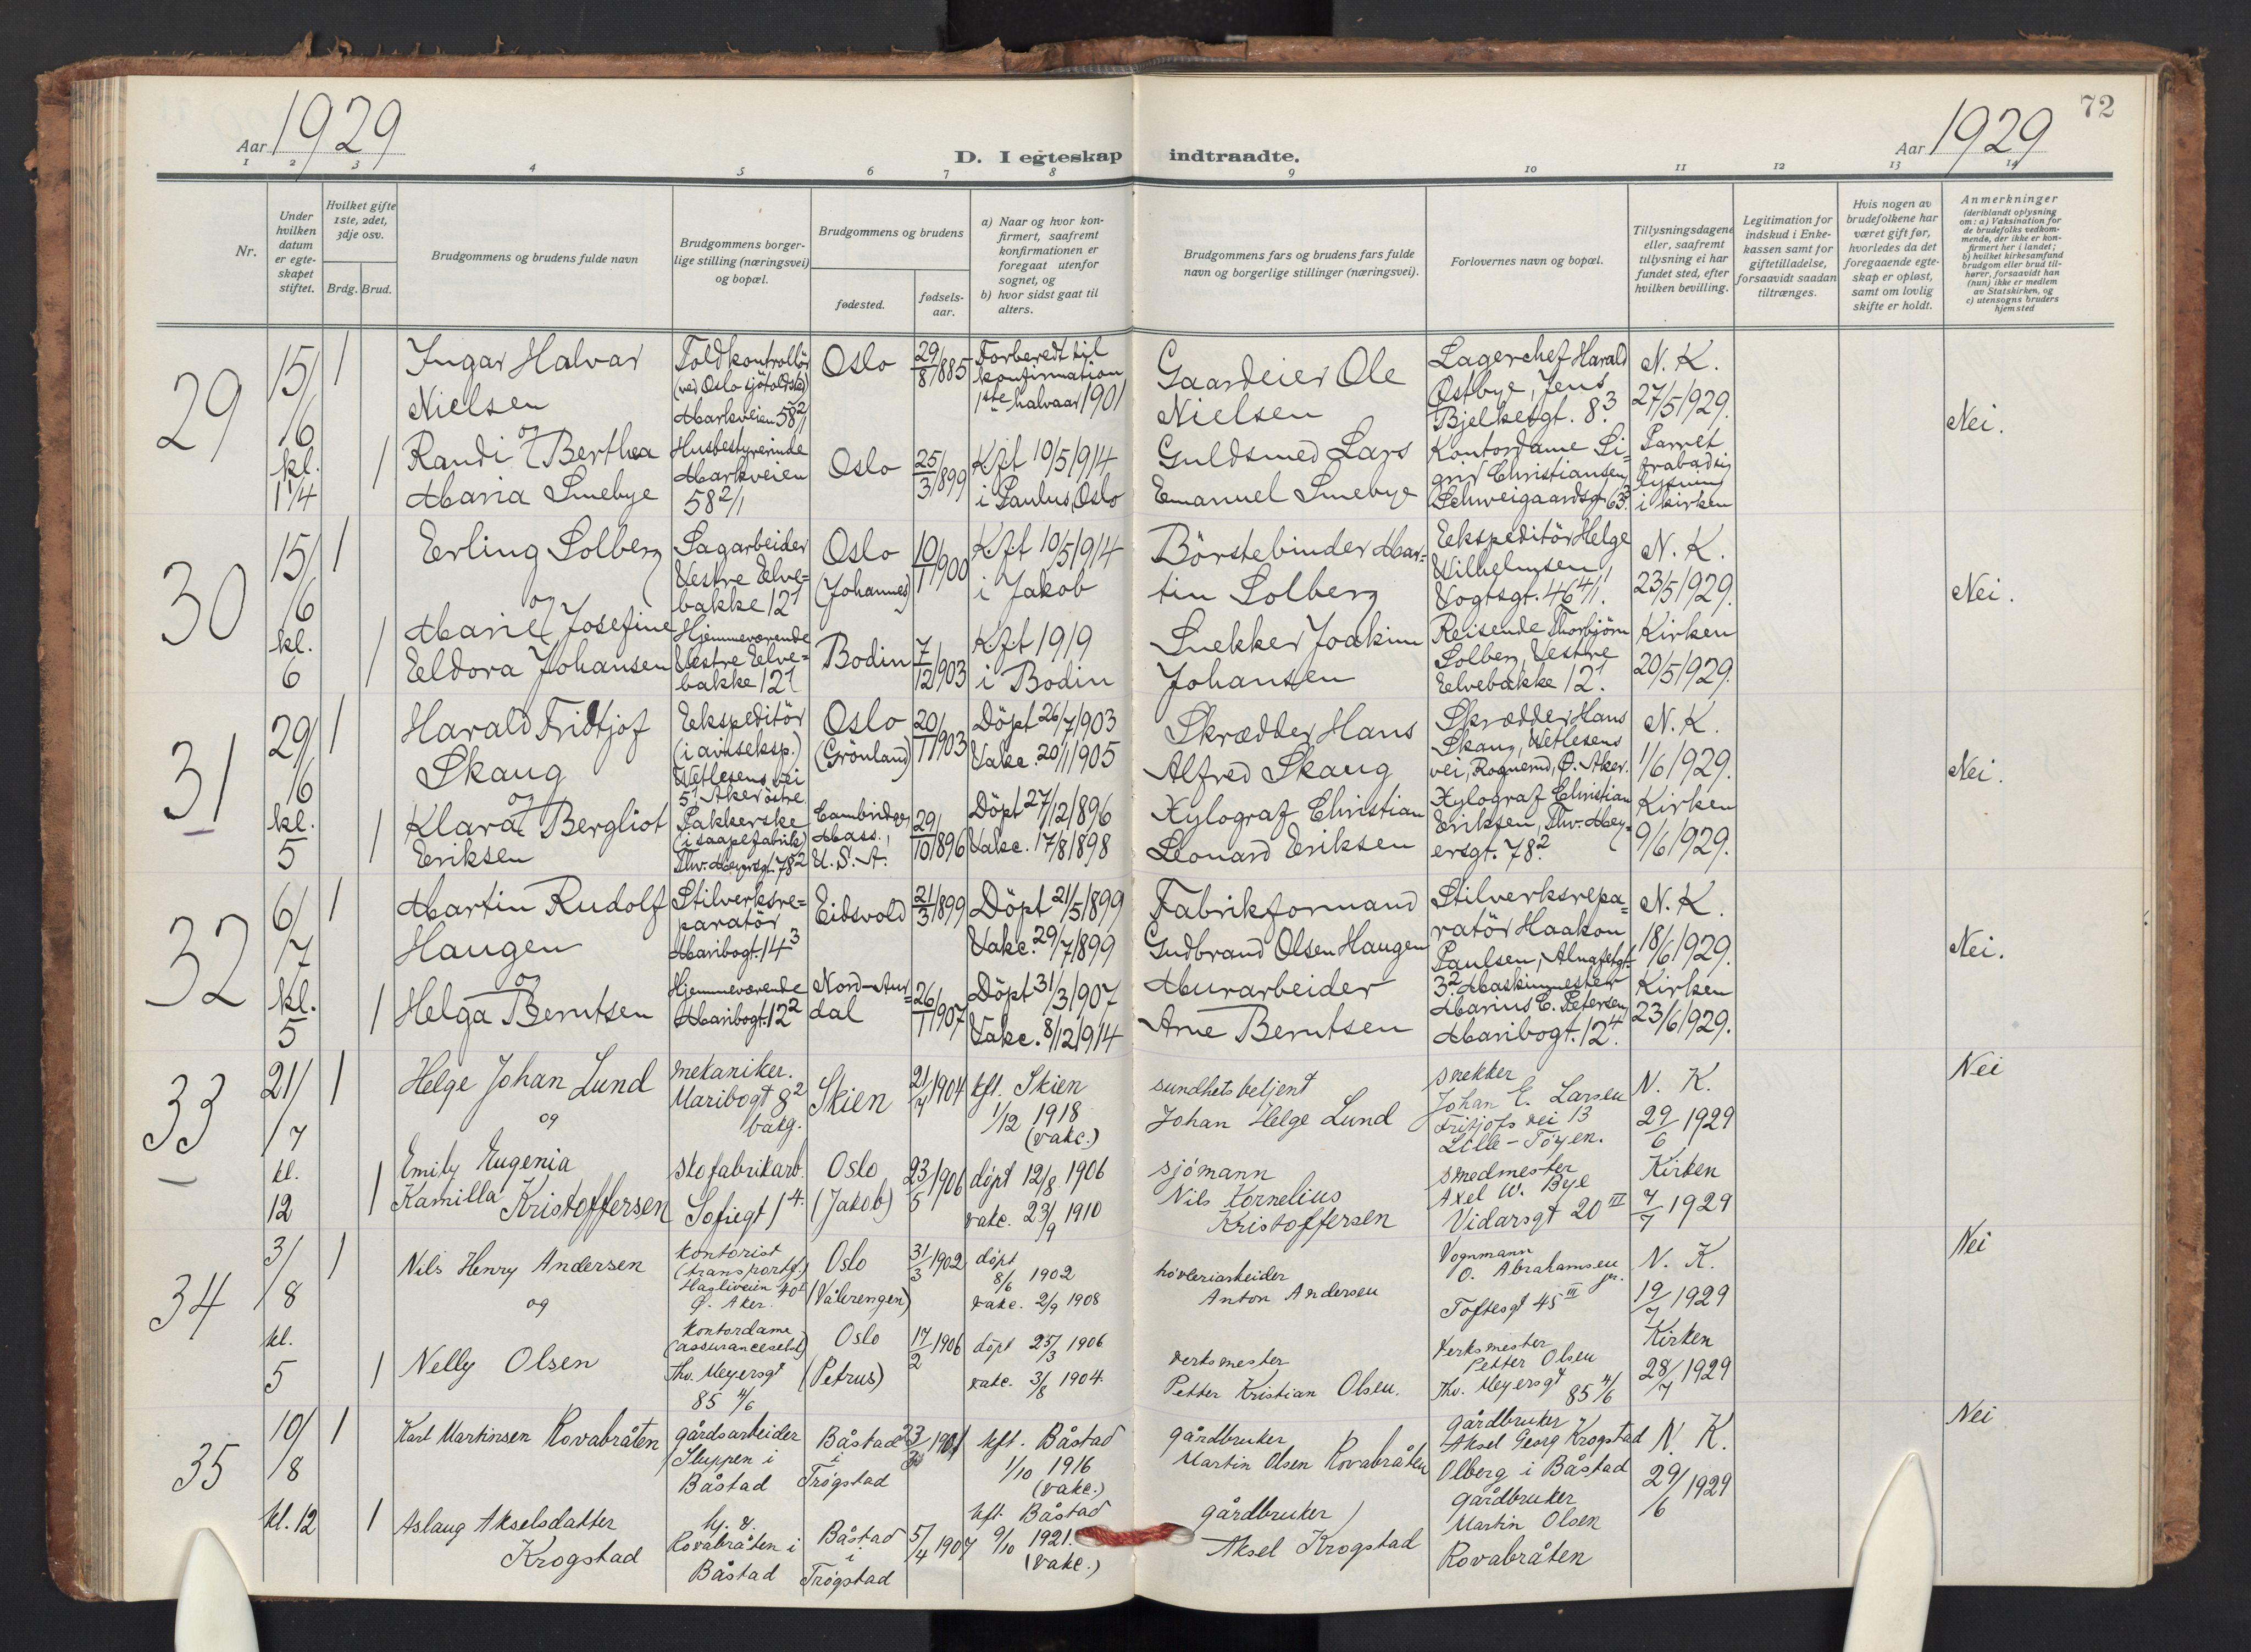 72
Aar 1929
D. I egteskap indtraadte.
Aar 1929
1 2 3 4 5 6 7 8 9 10 11 12 13 14
Nr.
Under hvilken datum er egteskapet stiftet.
Hvilket gifte 1ste, 2det, 3dje osv.
Brdg. Brud.
Brudgommens og brudens fulde navn
Brudgommens borgerlige stilling (næringsvei) og bopæl.
Brudgommens og brudens
fødested.
fødselsaar.
a) Naar og hvor konfirmert, saafremt konfirmationen er foregaat utenfor sognet, og
b) hvor sidst gaat til alters.
Brudgommens fars og brudens fars fulde navn og borgerlige stillinger (næringsvei).
Forlovernes navn og bopæl.
Tillysningsdagene eller, saafremt tillysning ei har fundet sted, efter hvilken bevilling.
Legitimation for indskud i Enkekassen samt for giftetilladelse, forsaavidt saadan tiltrænges.
Hvis nogen av brudefolkene har været gift før, hvorledes da det foregaaende egteskap er opløst, samt om lovlig skifte er holdt.
Anmerkninger
(deriblandt oplysning om: a) Vaksination for de brudefolks vedkommende, der ikke er konfirmert her i landet; b) hvilket kirkesamfund brudgom eller brud tilhører, forsaavidt han (hun) ikke er medlem av Statskirken, og c) utensogns bruders hjemsted
29
15/6 kl. 1 1/4
1
Ingar Halvar
Nielsen
og
Toldkontrollör
(ved Oslo sjötoldsted)
Markveien 58 2/1
Oslo
29/8 1885
Forberedt til
konfirmation
1ste halvaar 1901
Gaardeier Ole
Nielsen
Lagerchef Harald
Østbye, Jens
Bjelkesgt. 8³
N. K.
27/5 1929.
Nei.
1
Randi Berthea
Maria Smebye
Husbestyrerinde
Markveien
58 2/1
Oslo
25/3 1899
Kft 10/5 1914
i Paulus, Oslo
Guldsmed Lars
Emanuel Smebye
Kontordame Si=
grid Christiansen
Schweigaardsg. 63³.
Parret
frabad sig
lysning
i kirken
30
15/6 kl. 6
1
Erling Solberg
og
Sagarbeider
Vestre Elve=
bakke 12¹
Oslo
(Johannes)
10/1 1900
Kft 10/5 1914
i Jakob
Börstebinder Mar=
tin Solberg
Ekspeditör Helge
Wilhelmsen
Vogtsgt. 46 4/1.
N. K.
23/5 1929.
Nei.
1
Marie Josefine
Eldora Johansen
Hjemmeværende
Vestre Elve=
bakke 12¹
Bodin
7/12 1903
Kft 1919
i Bodin
Snekker Joakim
Johansen
Reisende Thorbjörn
Solberg, Vestre
Elvebakke 12¹.
Kirken
20/5 1929.
31
29/6 kl. 5
1
Harald Fridtjof
Skaug
og
Ekspeditör
(i aviseksp.)
Wetlesens vei
5¹ Aker östre
Oslo
(Grönland)
20/1 1903
Döpt 26/7 1903
Vakc. 20/1 1905
Skrædder Hans
Alfred Skaug
Skrædder Hans
Skaug, Wetlesens
vei, Rognerud, Ö. Aker.
N. K.
1/6 1929.
Nei.
1
Klara Bergliot
Eriksen
Pakkerske
(i saapefabrik)
Thv. Meyersgt. 78²
Cambridge,
Mass.,
U. S. A.
29/10 1896
Döpt 27/12 1896
Vakc. 17/8 1898
Xylograf Christian
Leonard Eriksen
Xylograf Christian
Eriksen, Thv. Mey=
ersgt. 78².
Kirken
9/6 1929.
32
6/7 kl. 5
1
Martin Rudolf
Haugen
og
Stilverksre=
paratör
Maribogt. 14³
Eidsvold
21/3 1899
Döpt 21/5 1899
Vakc. 29/7 1899
Fabrikformand
Gudbrand Olsen Haugen
Stilverksrepa=
ratör Haakon
Paulsen, Almafetgt.
3².
N. K.
18/6 1929.
Nei.
1
Helga Berntsen
Hjemmeværende
Maribogt. 12²
Nord-Aur=
dal
26/1 1907
Döpt 31/3 1907
Vakc. 8/12 1914
Murarbeider
Arne Berntsen
Maskinmester
Marius E. Petersen
Maribogt. 12⁴.
Kirken
23/6 1929.
33
21/7 kl. 12
1
Helge Johan Lund
og
mekaniker.
Maribogt 8²
bakg.
Skien
21/4 1904
kft. Skien
1/12 1918
(vakc.)
sundhetsbetjent
Johan Helge Lund
snekker
Johan E. Larsen
Fritjofs vei 13
Lille-Töyen.
N. K.
29/6 1929
Nei
1
Emily Eugenia
Kamilla Kristoffersen
skofabrikarb.
Sofiegt 1⁴.
Oslo
(Jakob)
23/5 1906
döpt 12/8 1906
vakc. 23/9 1910
sjömann
Nils Kornelius
Kristoffersen
smedmester
Axel W. Bye
Vidarsgt 20 III
Kirken
7/7 1929
34
3/8 kl. 5
1
Nils Henry Andersen
og
kontorist
(transportf.)
Hagliveien 40 I
Ø. Aker.
Oslo
(Vålerengen)
31/3 1902
döpt
8/6 1902
vakc. 2/9 1908
høvleriarbeider
Anton Andersen
Vognmann
O. Abrahamsen
jr.
Toftesgt 45 III
N. K.
19/7 1929
Nei
1
Nelly Olsen
kontordame
(assuranceselsk)
Thv. Meyersgt
85 4/6
Oslo
(Petrus)
17/2 1906
döpt 25/3 1906
vakc. 3/8 1904.
verksmester
Petter Kristian Olsen.
Verksmester
Petter Olsen
Thv. Meyersgt
85 4/6
Kirken
28/7 1929
35
10/8 kl. 12
1
Karl Martinsen Kovabråten
gårdsarbeider
Sluppen i
Båstad
Båstad
i
Trøgstad
23/3 1901
kft. Båstad
1/10 1916
(vakc.)
gårdbruker
Martin Olsen Kovabråten
gårdbruker
Aksel Georg Krogstad
Olberg i Båstad
N. K.
29/6 1929
Nei
1
Aslaug Akselsdatter
Krogstad
hj. v.
Kovabråten i
Båstad
Båstad
i
Trøgstad
5/4 1907
kft. Båstad
9/10 1921.
(vakc.)
gårdbruker
Aksel Krogstad
gårdbruker
Martin Olsen
Kovabråten